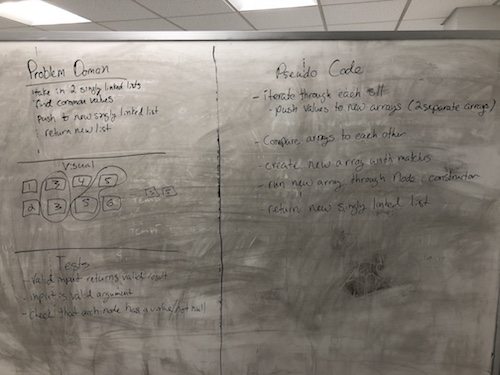 Problem Domain
take in 2 singly linked lists
find common values
push to new singly linked list
return new list
Visual
1 3 4 5
2 3 5 6
Tests
- Valid input returns valid result
- input is valid argument
- Check that each node has a value/not null
Pseudo Code
- iterate through each sll
- push values to new arrays (2 separate arrays)
- Compare arrays to each other
- create new array with matches
- run new array through Node constructor
return new singly linked list